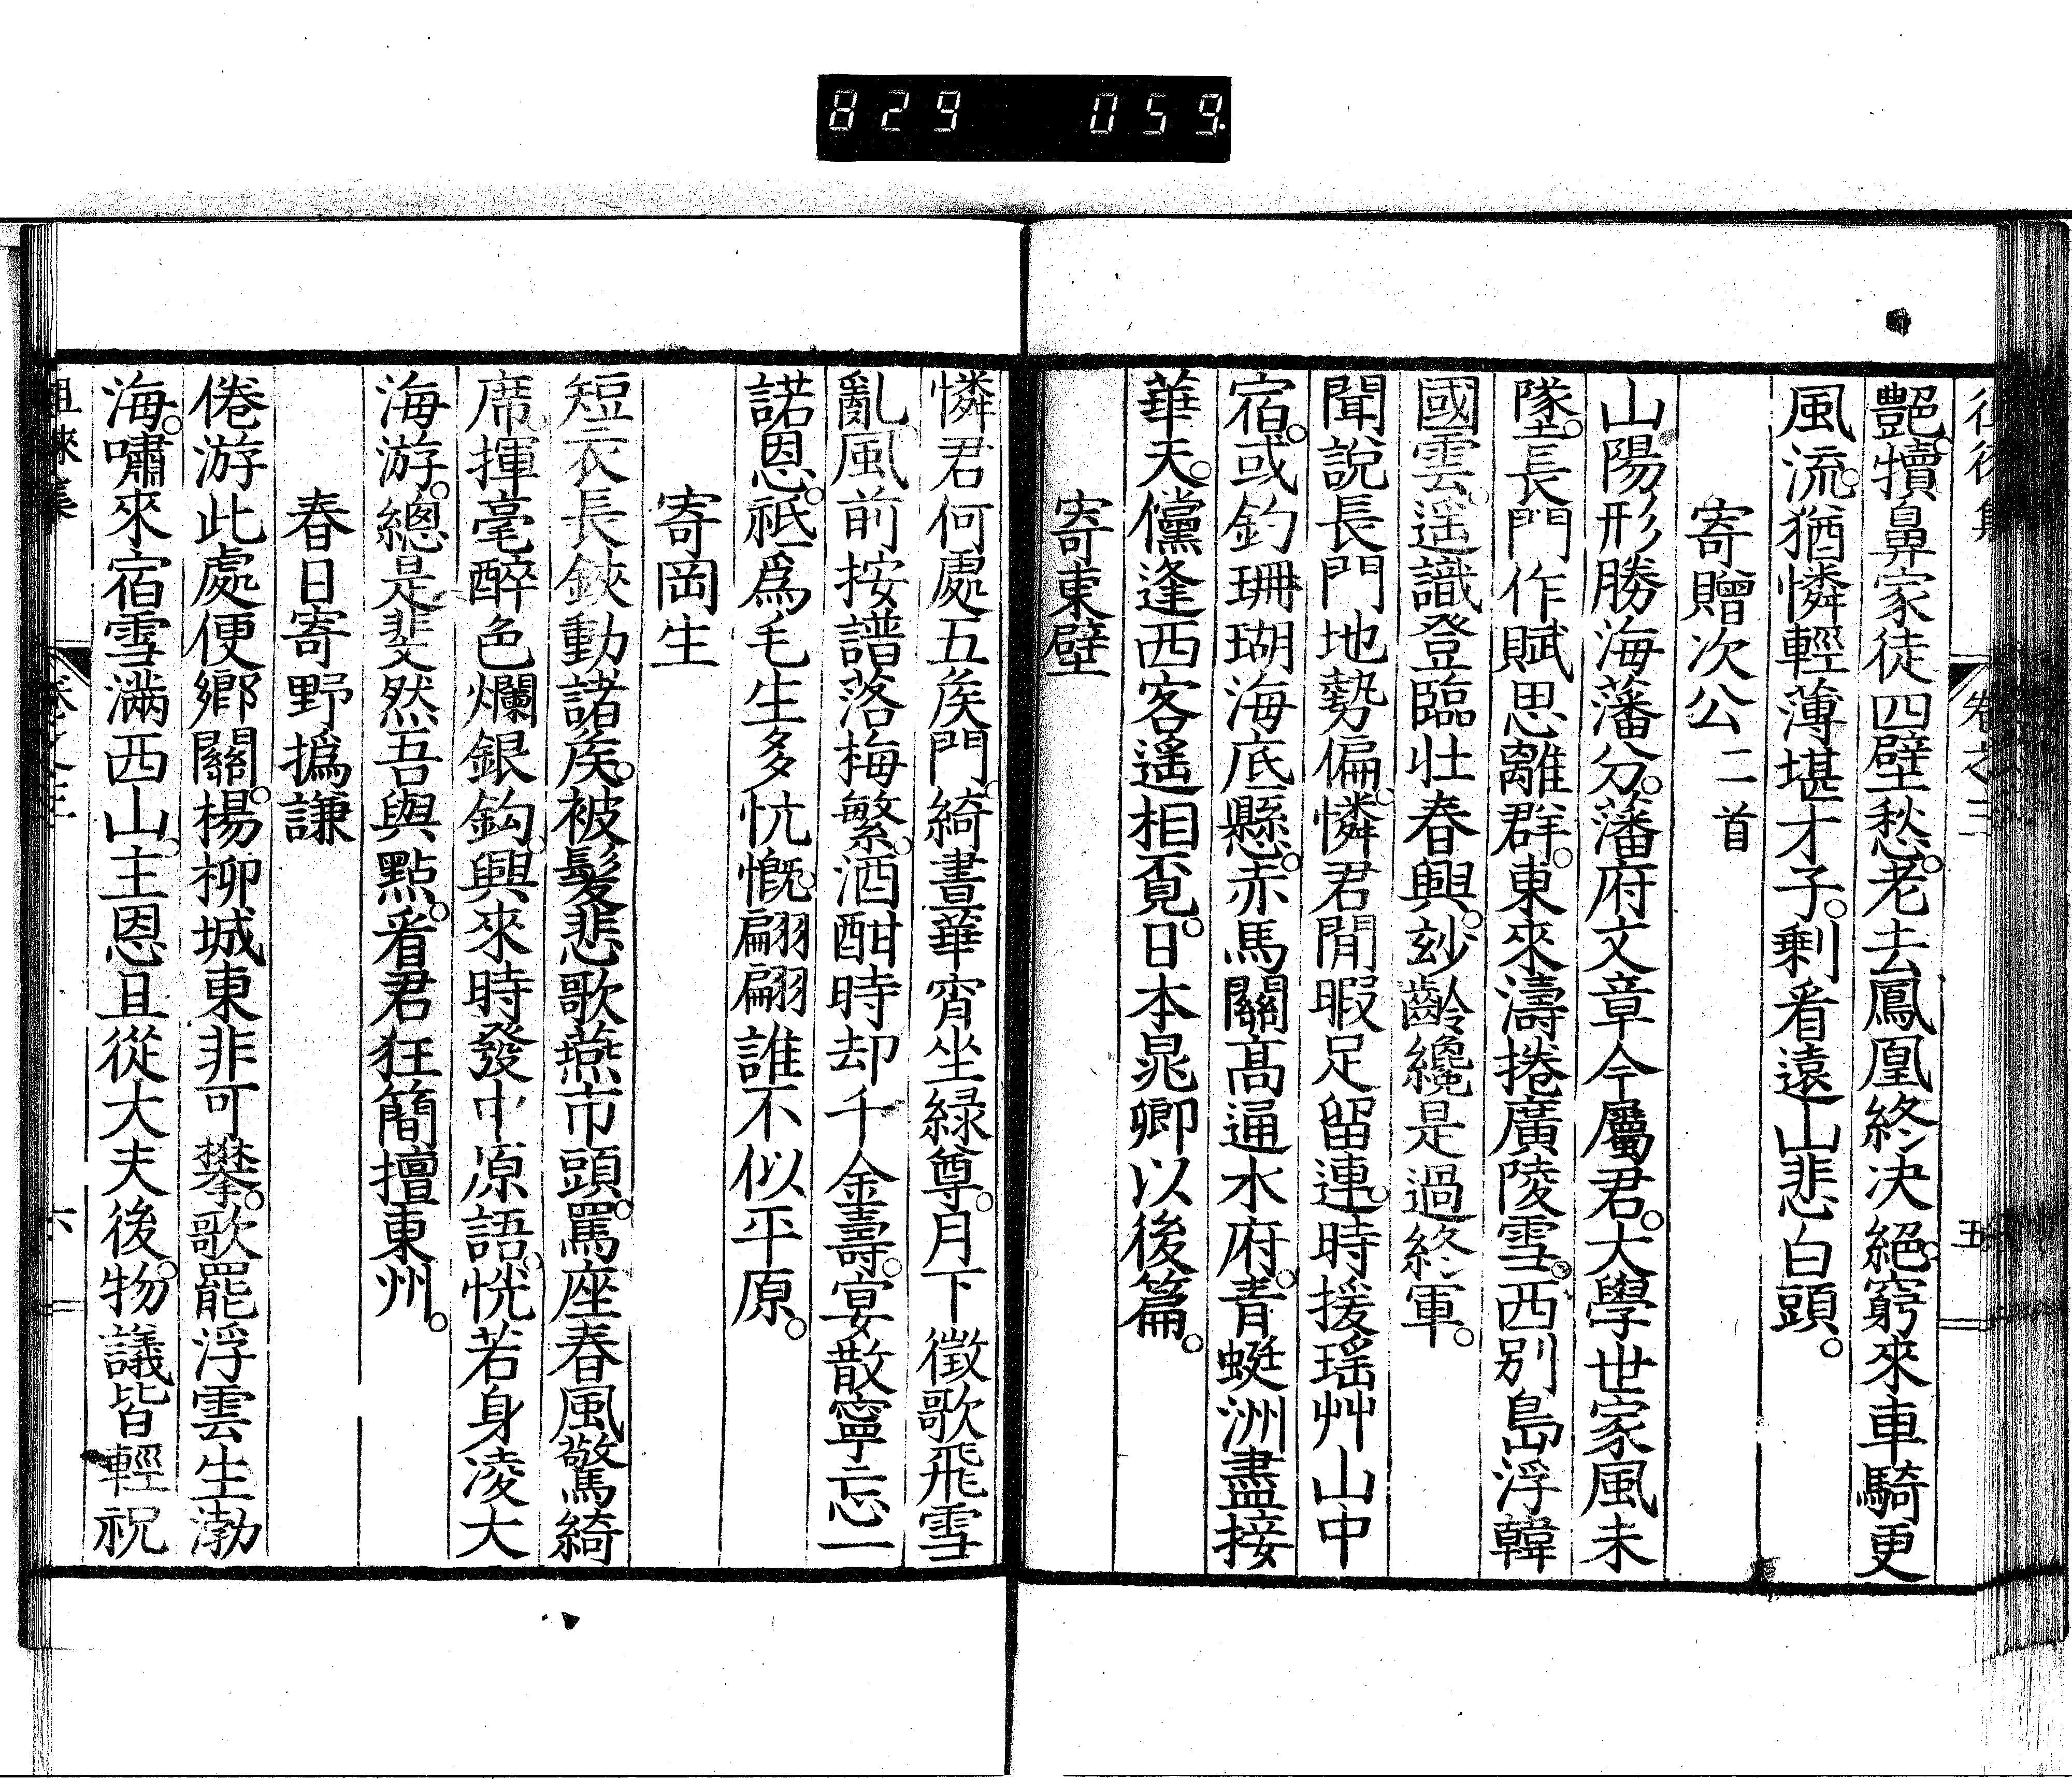 829 059
艷。犢鼻家徒四壁愁。老去鳳凰終決絕。窮來車騎更
風流。猶憐輕薄堪才子。剩看遠山悲白頭。
寄贈次公二首
山陽形勝海藩分。藩府文章今屬君。大學世家風未
墜。長門作賦思離群。東來濤捲廣陵雪。西別島浮韓
國雲。遥識登臨壯春興。玅齡纔是過終軍。
聞說長門地勢偏。憐君閒暇足留連。時援瑶艸山中
宿。或釣珊瑚海底懸。赤馬關高通水府。青蜓洲盡接
華天。儻逢西客遥相覔。日本晁卿以後篇。
寄東壁
憐君何處五矦門。綺書華宵坐緑尊。月下徵歌飛雪
亂。風前按譜落梅繁。酒酣時却千金壽。宴散寧忘一
諾恩。祇爲毛生多忼慨。翩翩誰不似平原。
寄岡生
短衣長鋏動諸矦。被髮悲歌燕市頭。罵座春風驚綺
席。揮毫醉色爛銀鈎。興來時發中原語。恍若身凌大
海游。總是斐然吾與點。看君狂簡擅東州。
春日寄野撝謙
倦游此處便鄉關。楊柳城東非可攀。歌罷浮雲生渤
海。嘯來宿雪滿西山。主恩且從大夫後。物議皆輕祝
徂徠集 六